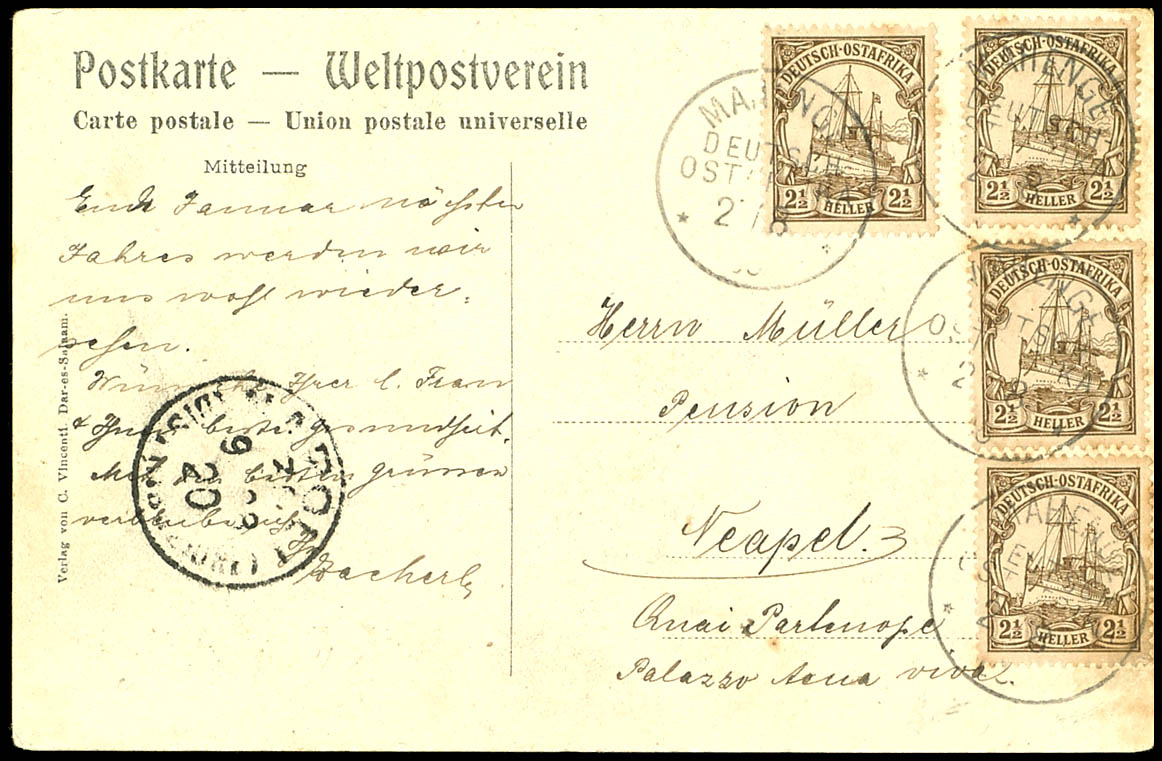 Postkarte — Weltpostverein
Carte postale — Union postale universelle
Mitteilung
Ende Januar nächsten
Jahres werden wir
uns wohl wieder-
sehen.
Wünsche Ihrer l. Frau
& Ihnen beste Gesundheit.
Mit den besten Grüssen
Bacherl
Verlag von C. Vincenti. Dar-es-Salaam.
DEUTSCH-OSTAFRIKA
2½ HELLER 2½
DEUTSCH-OSTAFRIKA
2½ HELLER 2½
DEUTSCH-OSTAFRIKA
2½ HELLER 2½
DEUTSCH-OSTAFRIKA
2½ HELLER 2½
MAHENGE
DEUTSCH
OSTAFRIKA
Herrn Müller
Pension
Neapel.
Quai Partenope
Palazzo Acua viva.